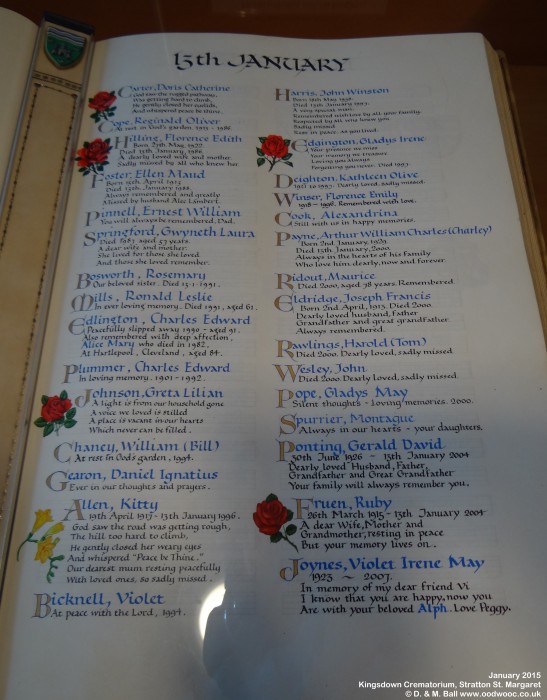 13th JANUARY
Carter, Doris Catherine
God saw the rugged pathway,
Was getting hard to climb,
He gently closed her eyelids,
And whispered peace be thine.
Cope, Reginald Oliver
At rest in God's garden. 1913 - 1986
Hilling, Florence Edith
Died 13th January, 1986.
A dearly loved wife and mother
Sadly missed by all who knew her.
Foster, Ellen Maud
Born 12th April 1913
Died 13th January, 1988.
Always remembered and greatly
Missed by husband Alec Lambert.
Pinnell, Ernest William
You will always be remembered, Dad.
Springford, Gwyneth Laura
Died 1983, aged 57 years.
A dear wife and mother.
She loved for those she loved
And those she loved remember.
Bosworth, Rosemary
Our beloved sister. Died 13.1.1991.
Mills, Ronald Leslie
In ever loving memory. Died 1991, aged 61.
Edlington, Charles Edward
Peacefully slipped away 1990 - aged 91.
Also remembered with deep affection,
Alice Mary who died in 1982,
At Hartlepool, Cleveland, aged 84.
Plummer, Charles Edward
In loving memory. 1901 - 1992.
Johnson, Greta Lilian
A light is from our household gone
A voice we loved is stilled
A place is vacant in our hearts
Which never can be filled.
Chaney, William (Bill)
At rest in God's garden, 1994.
Gearon, Daniel Ignatius
Ever in our thoughts and prayers.
Allen, Kitty
19th April 1917 - 13th January 1996.
God saw the road was getting rough,
The hill too hard to climb,
He gently closed her weary eyes
And whispered "Peace be Thine."
Our dearest mum resting peacefully
With loved ones, so sadly missed.
Bicknell, Violet
At peace with the Lord, 1994.
Harris, John Winston
A very special man.
Remembered with love by all your family.
Respected by all who knew you.
Sadly missed
Rest in peace, so god loved.
Eddington, Gladys Irene
Your presence we miss
Your memory we treasure
Loving you always
Forgetting you never. Died 1997.
Deighton, Kathleen Olive
1921 to 1997. Dearly loved, sadly missed.
Winser, Florence Emily
1918 - 1998. Remembered with love.
Cook, Alexandrina
Still with us in happy memories.
Payne, Arthur William Charles (Charley)
Born 2nd January, 1929
Died 13th January, 2000.
Always in the hearts of his Family
Who love him dearly, now and forever.
Ridout, Maurice
Died 2000, aged 78 years. Remembered.
Eldridge, Joseph Francis
Born 2nd April, 1913. Died 2000
Dearly loved husband, Father
Grandfather and great grandfather.
Always remembered.
Rawlings, Harold (Tom)
Died 2000. Dearly loved, sadly missed.
Wesley, John
Died 2000. Dearly loved, sadly missed.
Pope, Gladys May
Silent thoughts - loving memories. 2000.
Spurrier, Montague
Always in our hearts - your daughters.
Ponting, Gerald David
30th June 1926 - 13th January 2004
Dearly Loved Husband, Father,
Grandfather and Great Grandfather
Your family will always remember you.
Fruen, Ruby
26th March 1915 - 13th January 2004
A dear Wife, Mother and
Grandmother, resting in peace
But your memory lives on.
Joynes, Violet Irene May
1923 ~ 2007.
In memory of my dear friend Vi
I know that you are happy, now you
Are with your beloved Alph. Love Peggy.
January 2015
Kingsdown Crematorium, Stratton St. Margaret
© D. & M. Ball www.oodwooc.co.uk